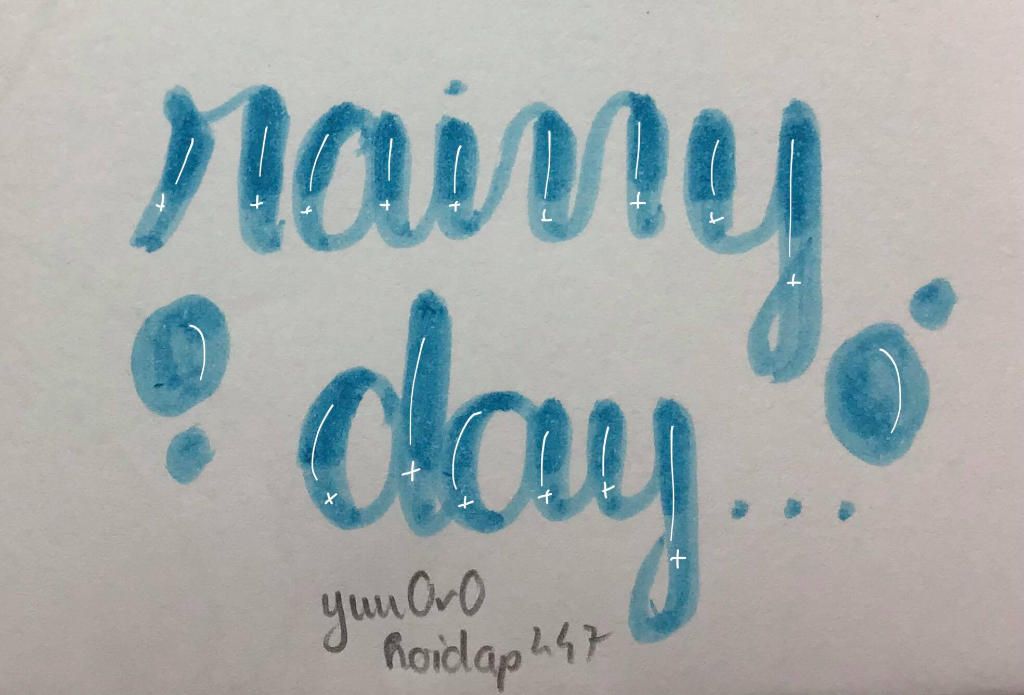 rainy
day...
yuu0v0
Hoidap247